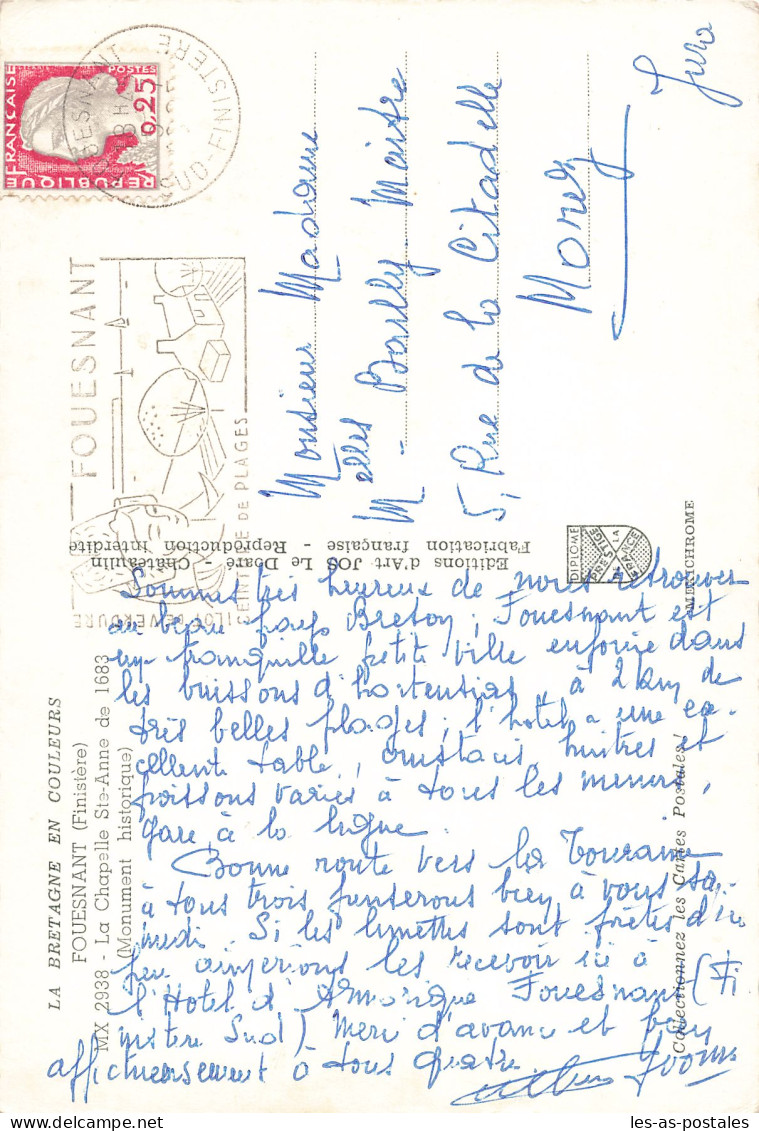 LA BRETAGNE EN COULEURS
FOUESNANT (Finistère)
MX 2938 - La Chapelle Ste-Anne de 1683
(Monument historique)
Editions d'Art JOS Le Doaré - Châteaulin
Fabrication française - Reproduction interdite
MEXICHROME
Collectionnez les Cartes Postales !
DIPLOME
PRESTIGE
DE LA
FRANCE
REPUBLIQUE FRANÇAISE
POSTES
0,25
FOUESNANT
18H
SUD-FINISTERE
FOUESNANT
ILOT DE VERDURE
CEINTURE DE PLAGES
Monsieur Madame
Melles Bailly Maitre
5, Rue de la Citadelle
Morez
Jura
Sommes très heureux de nous retrouver
au beau pays Breton ; Fouesnant est
une tranquille petite ville enfouie dans
les buissons d'hortensias, à 2 km de
très belles plages ; l'hôtel a une ex-
cellente table, huitres et
poissons variés à tous les menus,
gare à la ligne.
Bonne route vers la Touraine
à tous trois penserons bien à vous sa-
medi. Si les lunettes sont prêtes d'ici
peu aimerions les recevoir ici à
l'Hotel d'Armorique Fouesnant (Fi
nistère Sud). Merci d'avance et bien
affectueusement à tous quatre.